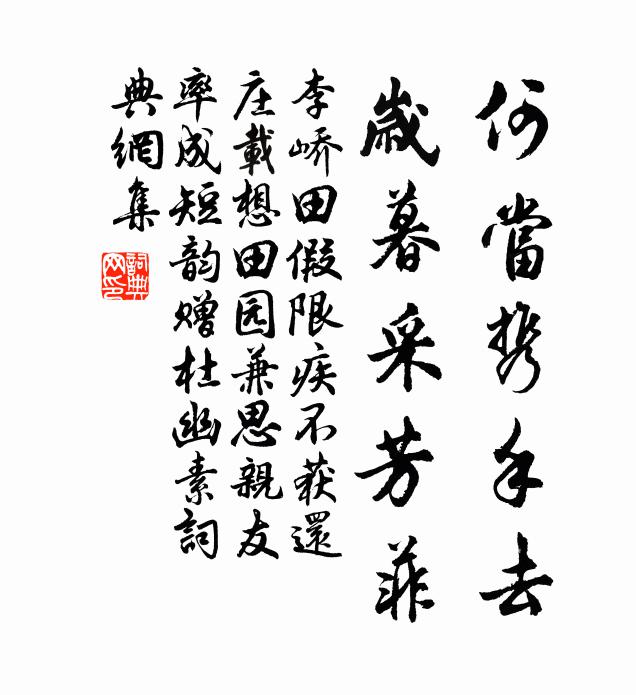 何當携手去
歲暮采芳菲
李嶠田假限疾不获還
庄載想田园兼思親友
率成短韵赠杜幽素詞
典網集
詞典
网印